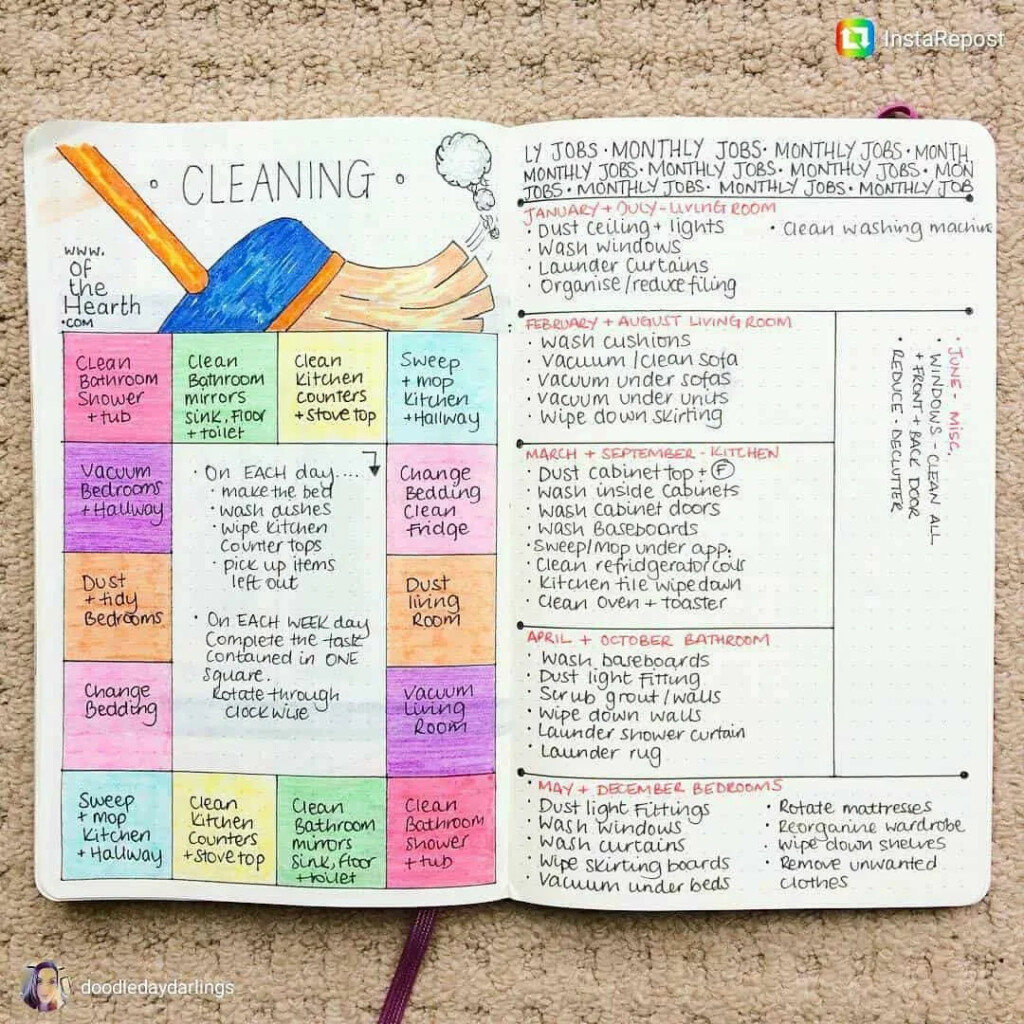 InstaRepost
CLEANING
www.
of
the
Hearth
.com
Clean
Bathroom
Shower
+ tub
Clean
Bathroom
mirrors
sink, floor
+ toilet
Clean
Kitchen
counters
+ stove top
Sweep
+ mop
Kitchen
+ Hallway
Vacuum
Bedrooms
+ Hallway
Dust
+ tidy
Bedrooms
Change
Bedding
• On EACH day....
• make the bed
• wash dishes
• wipe kitchen
counter tops
• pick up items
left out
• On EACH WEEK day
Complete the task
contained in ONE
square.
Rotate through
clockwise
Change
Bedding
Clean
Fridge
Dust
living
Room
Vacuum
Living
Room
Sweep
+ mop
Kitchen
+ Hallway
Clean
Kitchen
Counters
+ stove top
Clean
Bathroom
mirrors
sink, floor
+ toilet
Clean
Bathroom
Shower
+ tub
LY JOBS • MONTHLY JOBS • MONTHLY JOBS • MONTH
MONTHLY JOBS • MONTHLY JOBS • MONTHLY JOBS • MON
JOBS • MONTHLY JOBS • MONTHLY JOBS • MONTHLY JOB
JANUARY + JULY - LIVING ROOM
• Dust ceiling + lights
• Wash windows
• Launder curtains
• Organise / reduce filing
• Clean washing machine
FEBRUARY + AUGUST LIVING ROOM
• Wash cushions
• Vacuum / clean sofa
• Vacuum under sofas
• Vacuum under units
• Wipe down skirting
• JUNE - MISC.
• WINDOWS - CLEAN ALL
+ FRONT + BACK DOOR
• REDUCE - DECLUTTER
MARCH + SEPTEMBER - KITCHEN
• Dust cabinet top + F
• Wash inside cabinets
• Wash cabinet doors
• Wash Baseboards
• Sweep/Mop under app.
• Clean refridgerator coils
• Kitchen tile wipedown
• Clean oven + toaster
APRIL + OCTOBER BATHROOM
• Wash baseboards
• Dust light fitting
• Scrub grout / walls
• Wipe down walls
• Launder shower curtain
• Launder rug
• MAY + DECEMBER BEDROOMS
• Dust light fittings
• Wash windows
• Wash curtains
• Wipe skirting boards
• Vacuum under beds
• Rotate mattresses
• Reorganine wardrobe
• Wipe down shelves
• Remove unwanted
clothes
doodledaydarlings